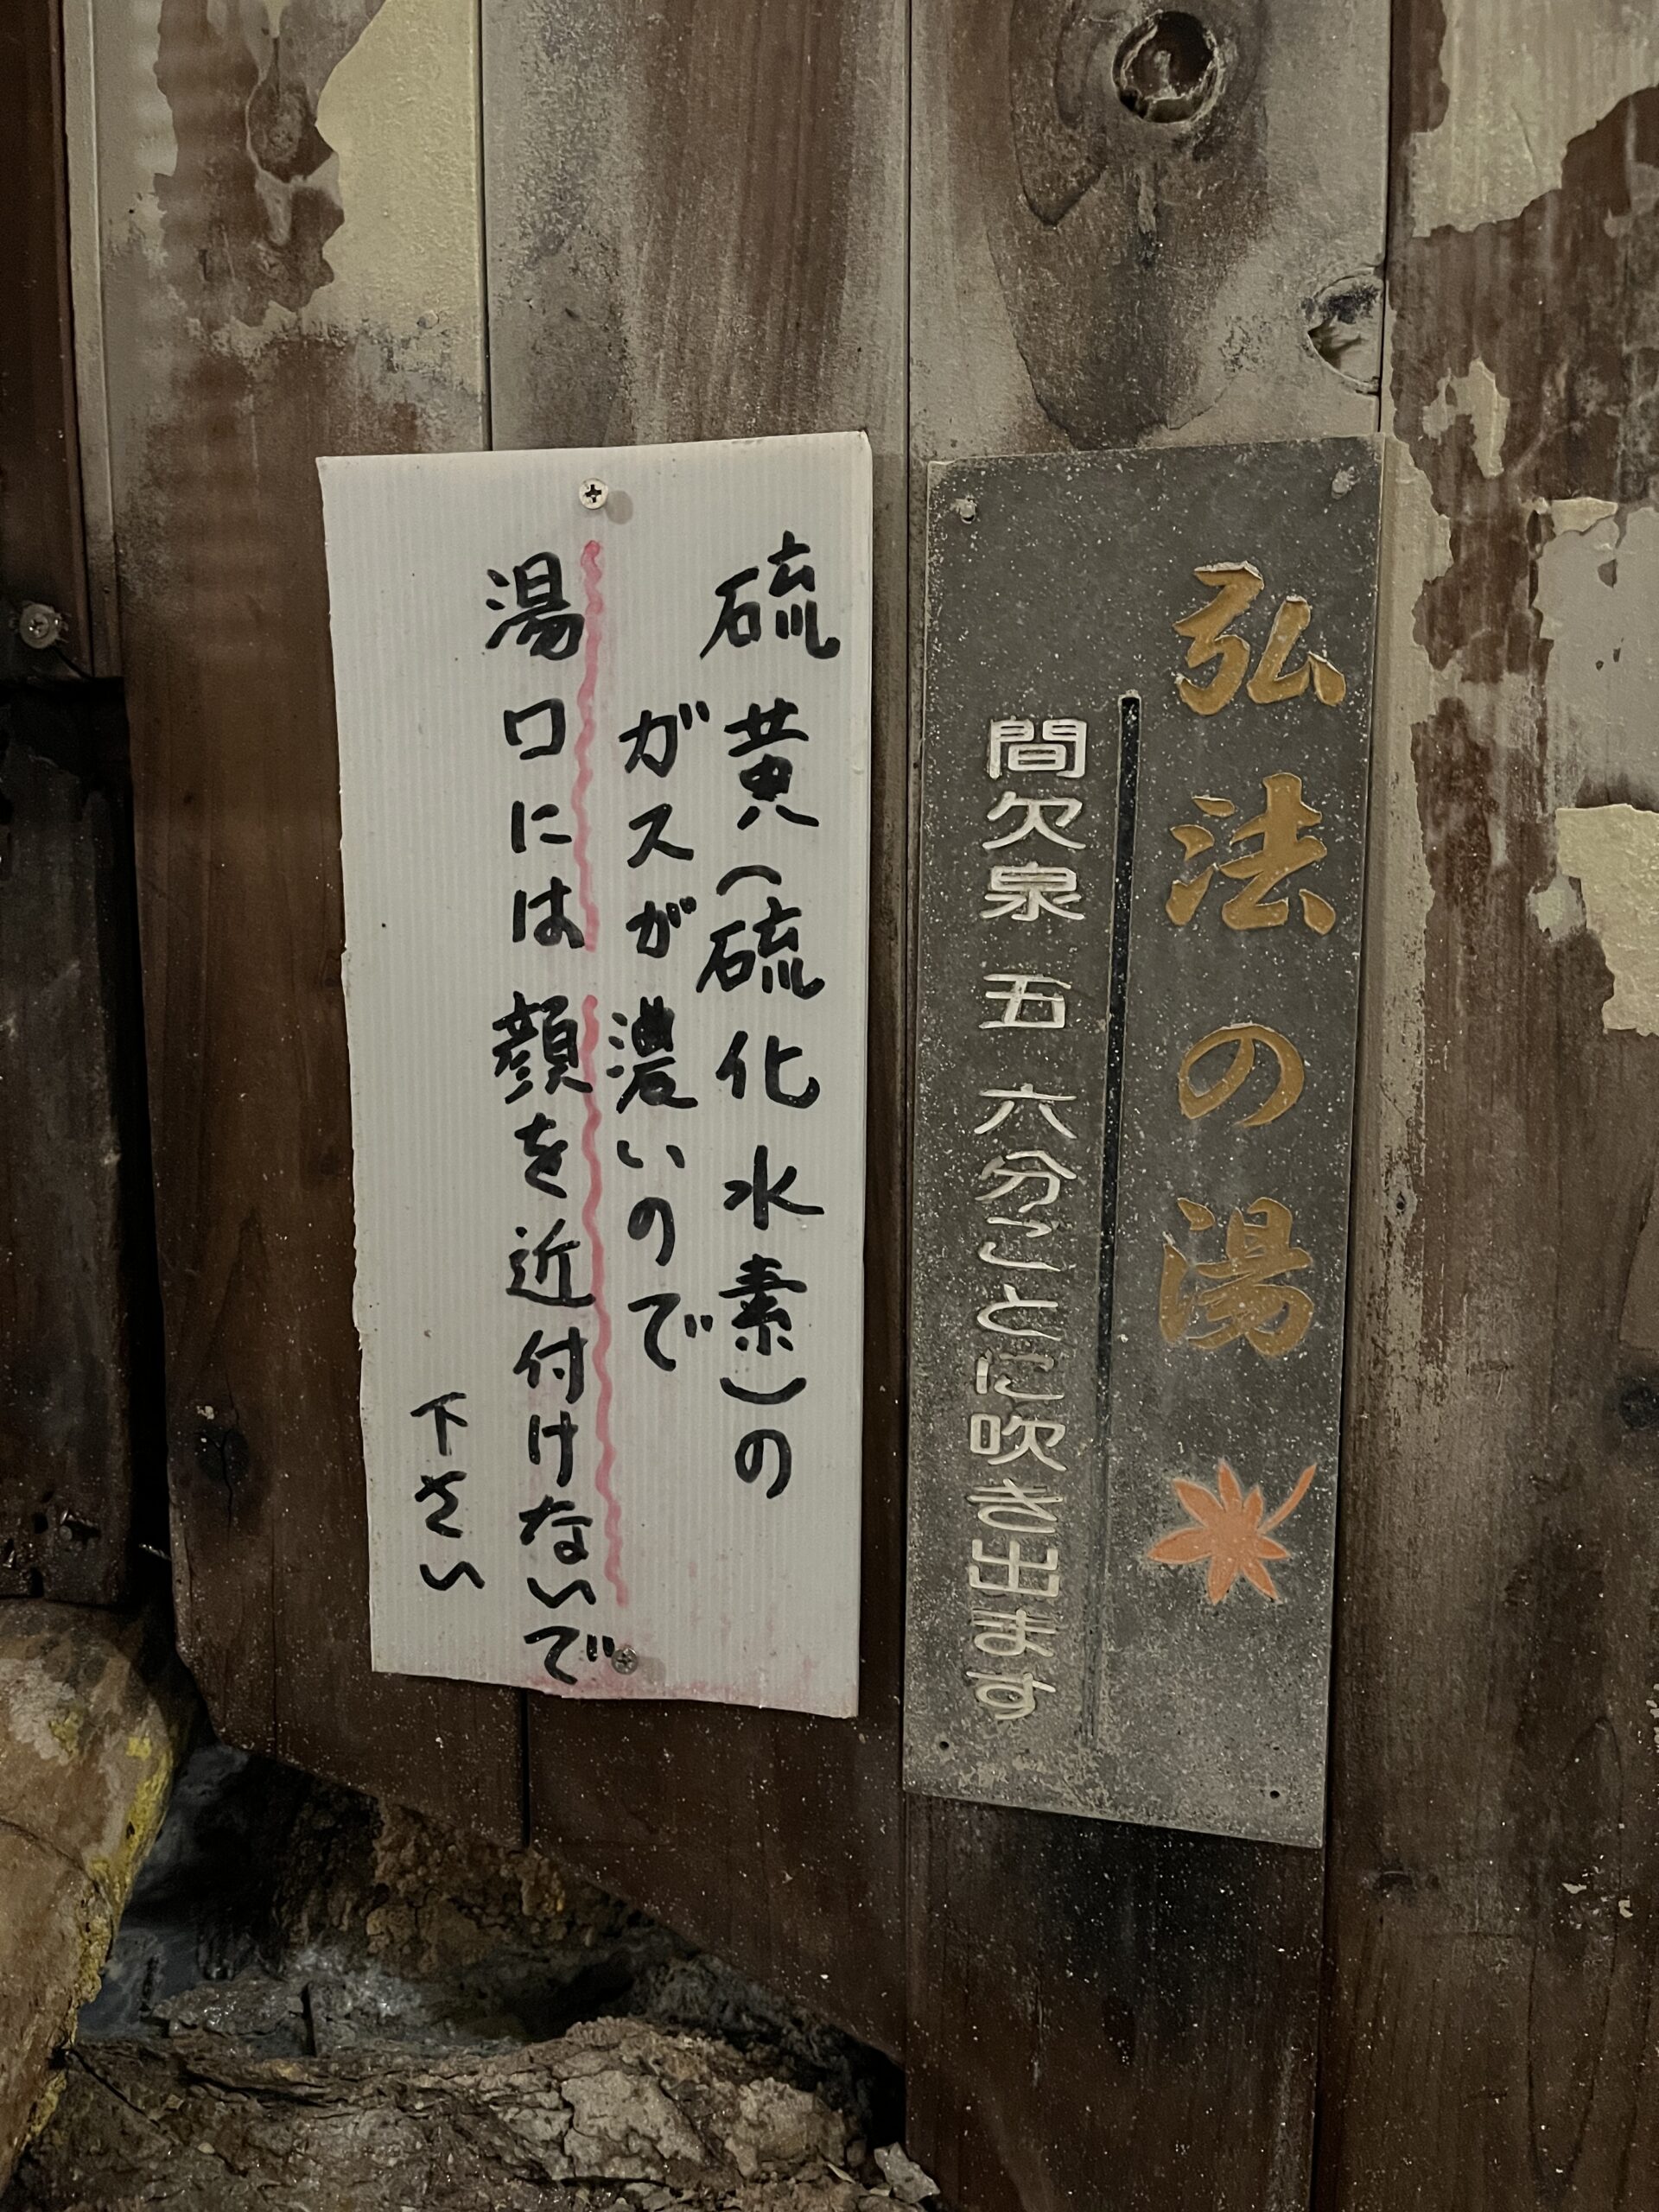 弘法の湯
間欠泉 五 六分ごとに吹き出ます
硫黄(硫化水素)の
ガスが濃いので
湯口には顔を近付けないで
下さい